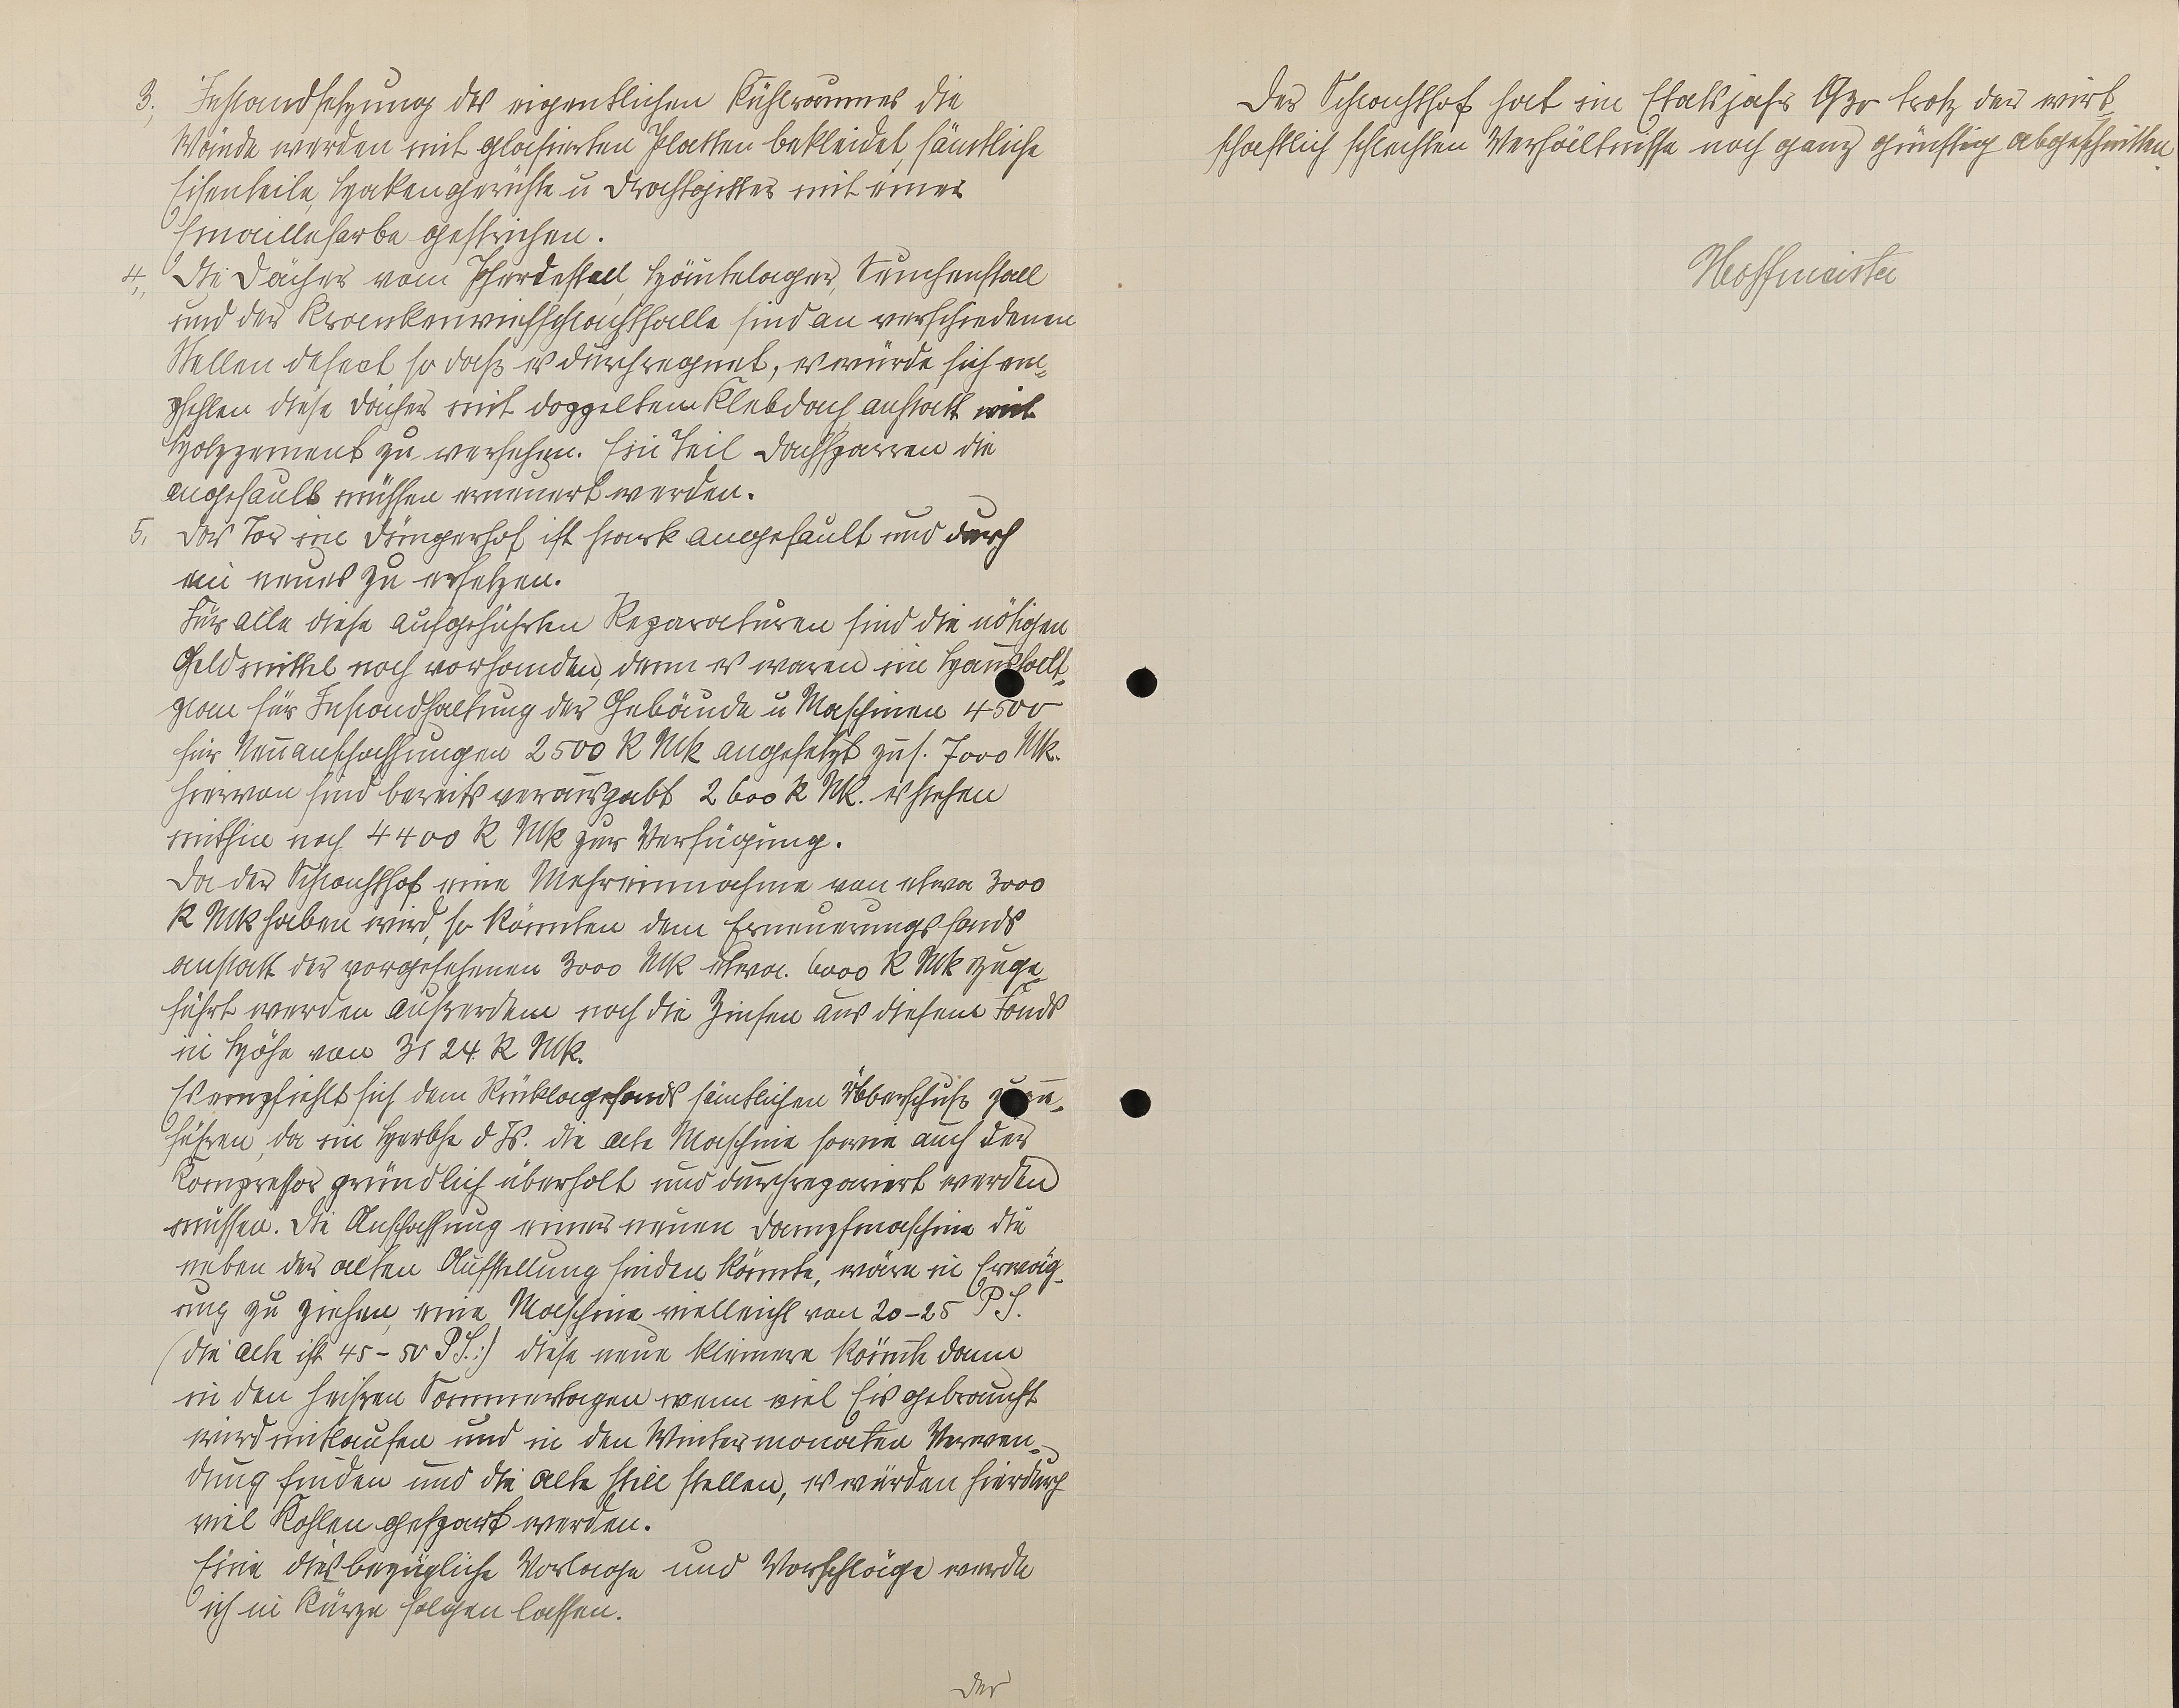 3., Instandsetzung des eigentlichen Kühlraumes die
Wände werden mit glasierten Platten bekleidet, sämtliche
Eisenteile, Hakengerüste u Drahtgitter mit einer
Emaillefarbe gestrichen.
4., Die Dächer vom Pferdestall, Häutelager, Seuchenstall
und der Krankenviehschlachthalle sind an verschiedenen
Stellen defect so daß es durchregnet, es würde sich em-
pfehlen diese Dächer mit doppeltem Klebdach anstatt mit
Holzzement zu versehen. Ein Teil Dachsparren die
angefault müssen erneuert werden.
5. Das Tor im Düngerhof ist stark angefault und durch
ein neues zu ersetzen.
Für alle diese aufgeführten Reparaturen sind die nötigen
Geldmittel noch vorhanden, denn es waren im Haushalt-
plan für Instandhaltung der Gebäude u Maschinen 4500
für Neuanschaffungen 2500 R Mk angesetzt zus. 7000 Mk.
hiervon sind bereits verausgabt 2600 R Mk. es stehen
mithin noch 4400 R Mk zur Verfügung.
Da der Schlachthof eine Mehreinnahme von etwa 3000
R Mk haben wird, so könnten dem Erneuerungsfonds
anstatt der vorgesehenen 3000 Mk etwa. 6000 R Mk zuge-
führt werden außerdem noch die Zinsen aus diesem Fonds
in Höhe von 3124 R Mk.
Es empfiehlt sich dem Rücklagefonds sämtlichen Überschuß
führen, da im Herbste d Js. die alte Maschine sowie auch der
Kompressor gründlich überholt und durchrepariert werden
müssen. Die Anschaffung einer neuen Dampfmaschine die
neben der alten Aufstellung finden könnte, wäre in Erwäg-
ung zu ziehen, eine Maschine vielleicht von 20-25 P.S.
(die alte ist 45-50 P.S.:) diese neue kleinere könnte dann
in den heißen Sommertagen wenn viel Eis gebraucht
wird mitlaufen und in den Wintermonaten Verwen-
dung finden und die alte still stellen, es würden hierdurch
viel Kohlen gespart werden.
Eine diesbezügliche Vorlage und Vorschläge werde
ich in Kürze folgen lassen.
Der
Der Schlachthof hat im Etatsjahr 1930 trotz der wirt-
schaftlich schlechten Verhältnisse noch ganz günstig abgeschnitten.
Hoffmeister